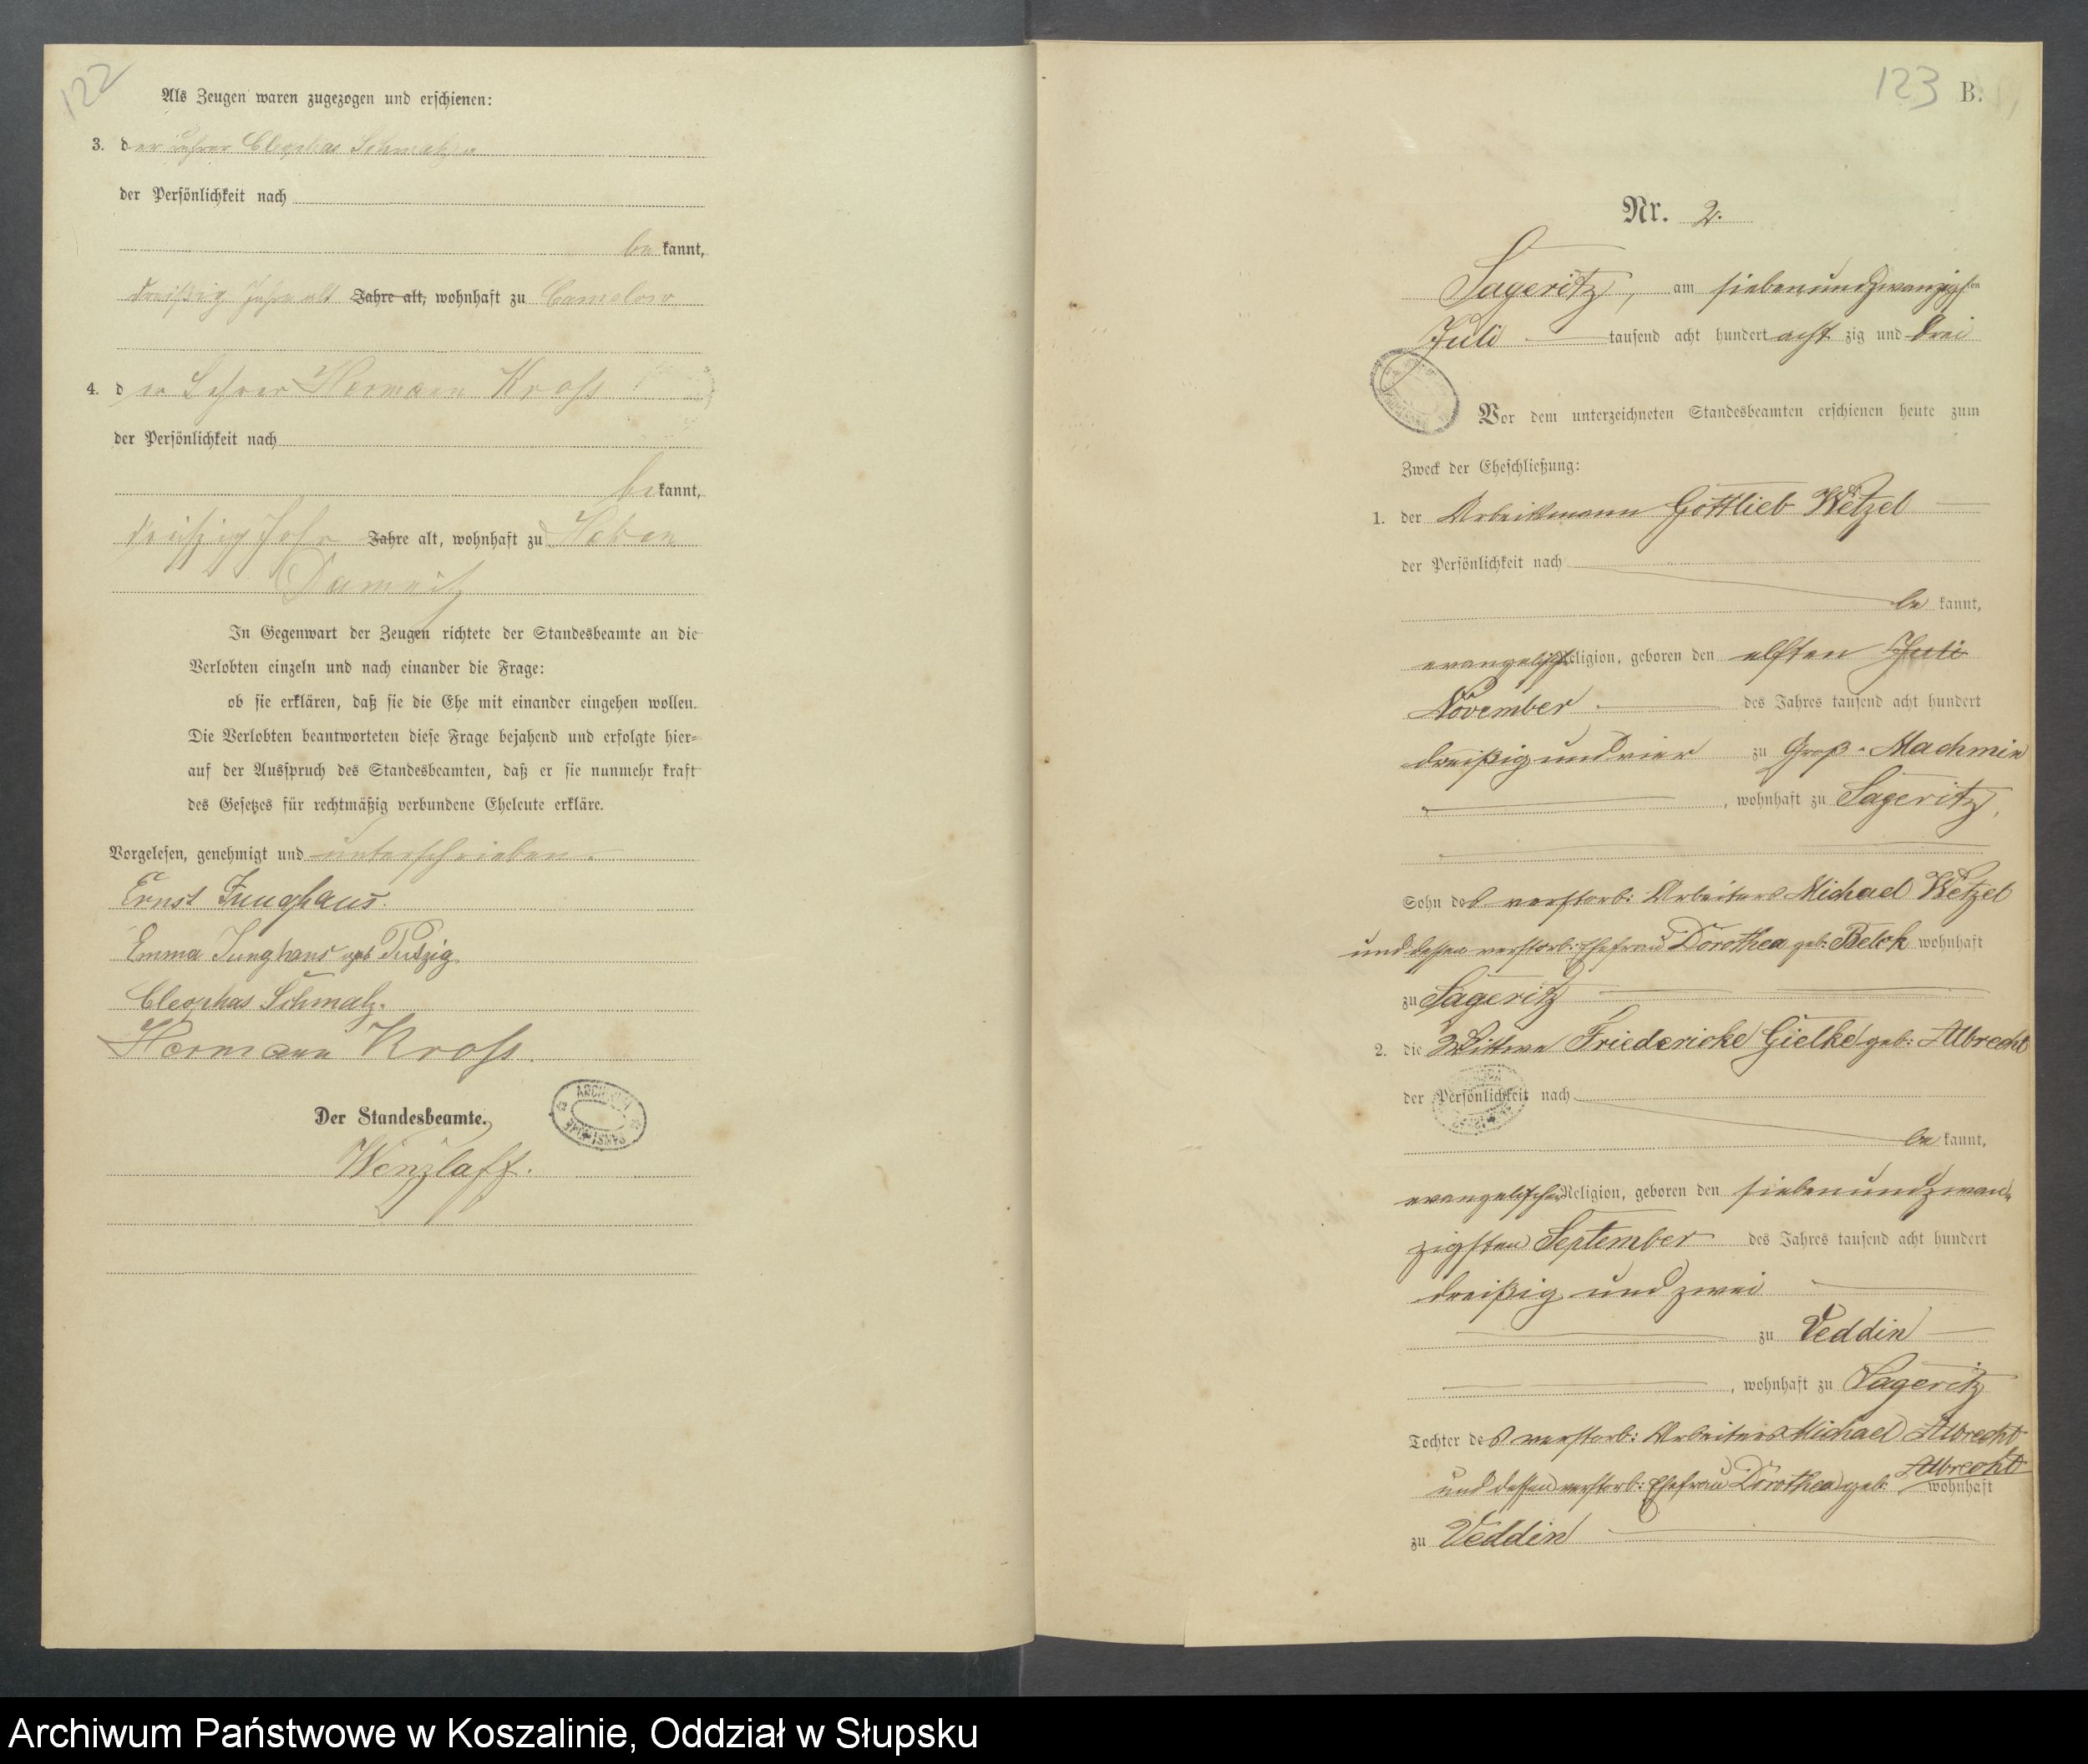 122
Als Zeugen waren zugezogen und erschienen:
3. der Lehrer Cleophas Schmalz
der Persönlichkeit nach
be kannt,
dreißig Jahre alt Jahre alt, wohnhaft zu Camelow
4. der Lehrer Hermann Kross
der Persönlichkeit nach
be kannt,
dreißig Jahre Jahre alt, wohnhaft zu Hohen
Damnitz
In Gegenwart der Zeugen richtete der Standesbeamte an die
Verlobten einzeln und nach einander die Frage:
ob sie erklären, daß sie die Ehe mit einander eingehen wollen.
Die Verlobten beantworteten diese Frage bejahend und erfolgte hier-
auf der Ausspruch des Standesbeamten, daß er sie nunmehr kraft
des Gesetzes für rechtmäßig verbundene Eheleute erkläre.
Vorgelesen, genehmigt und unterschrieben.
Ernst Junghans.
Emma Junghans geb Putzig
Cleophas Schmalz.
Hermann Kross.
Der Standesbeamte.
Wenzlaff.
123 B.
Nr. 2.
Sageritz, am siebenundzwanzigsten
Juli tausend acht hundert acht zig und drei
Vor dem unterzeichneten Standesbeamten erschienen heute zum
Zweck der Eheschließung:
1. der Arbeitsmann Gottlieb Wetzel
der Persönlichkeit nach
be kannt,
evangelischer Religion, geboren den elften Juli
November des Jahres tausend acht hundert
dreißig und vier zu Groß-Machmin
, wohnhaft zu Sageritz,
Sohn des verstorb: Arbeiters Michael Wetzel
und dessen verstorb: Ehefrau Dorothea geb: Belok wohnhaft
zu Sageritz
2. die Wittwe Friedericke Gielke geb: Albrecht
der Persönlichkeit nach
be kannt,
evangelischer Religion, geboren den siebenundzwan-
zigsten September des Jahres tausend acht hundert
dreißig und zwei
zu Veddin
, wohnhaft zu Sageritz
Tochter des verstorb: Arbeiters Michael Albrecht
und dessen verstorb: Ehefrau Dorothea geb: Albrecht wohnhaft
zu Veddin
Archiwum Państwowe w Koszalinie, Oddział w Słupsku